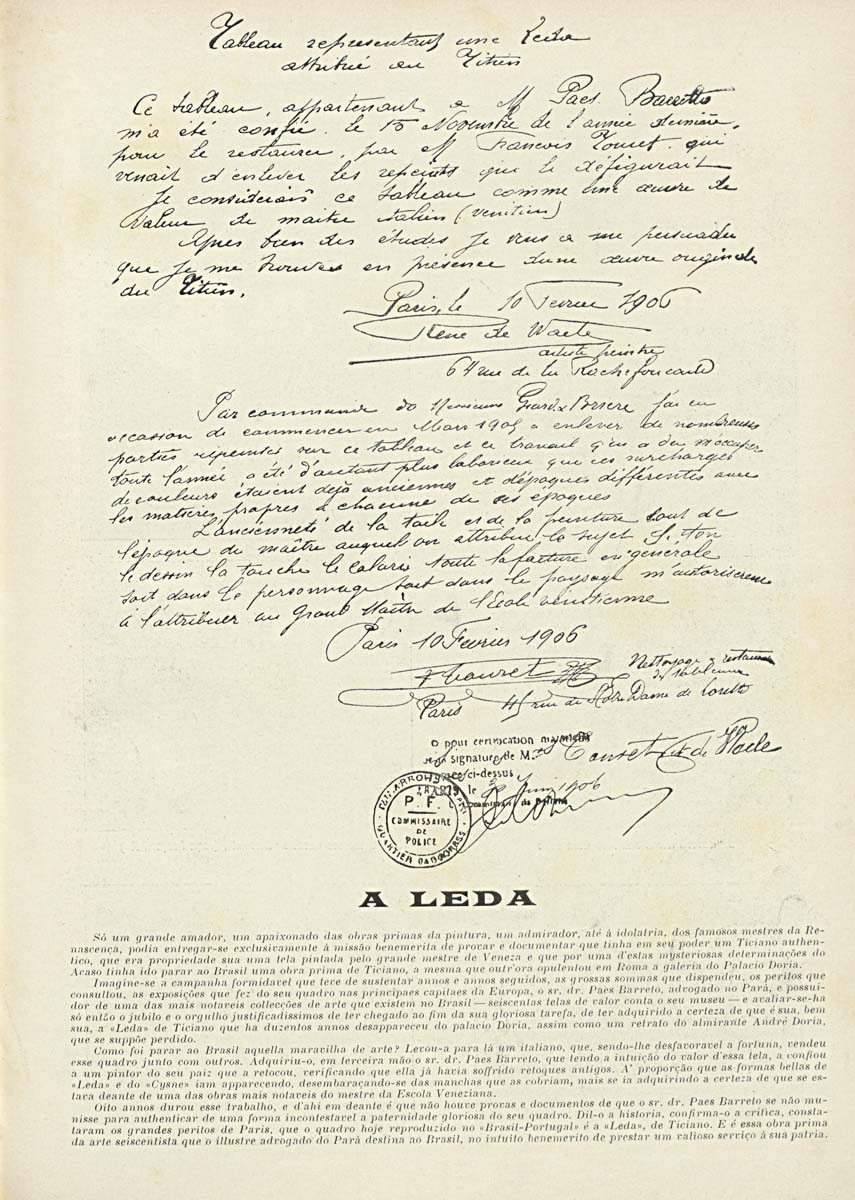 Tableau representant une Leda
attribué au Titien
Ce tableau, appartenant a M Paes Barretto
m'a été confié le 15 Novembre de l'année derniere,
pour le restaurer, par M François Touret qui
venait d'enlever les repeints qui le défigurait
Je considerais ce tableau comme une œuvre de
valeur de maitre italien (venitien)
Apres bien des études je me persuader
que je me trouve en présence d'une œuvre originale
du Titien.
Paris, le 10 Fevrier 1906
René de
artiste peintre
64 rue de la Rochefoucauld
Par commande do Monsieur j'ai eu
occasion de commencer en Mars 1905 a enlever de nombreuses
parties repeintes sur ce tableau et ce travail qu'on a du m'occuper
toute l'année, a été d'autant plus laborieux que ces surcharges
de couleurs étaient dejà anciennes et d'époques différentes avec
les matieres propres à chacune de ses epoques
L'ancienneté de la toile et de la peinture sont de
l'époque du maître auquel on attribue le sujet. Le ton
le dessin la touche le coloris toute la facture en générale
soit dans le personnage soit dans le paysage m'autorisent
à l'attribuer au Grand Maître de l'Ecole vénitienne
Paris 10 Fevrier 1906
Touret Nettoyage & restauration
de tableaux
Paris 45 rue de Notre Dame de Lorette
pour certification
signature de M. Touret et de
ci-dessus
PARIS, le Juin 1906
Commissaire de Police
P. F.
COMMISSAIRE
DE
POLICE
A LEDA
Só um grande amador, um apaixonado das obras primas da pintura, um admirador, até á idolatria, dos famosos mestres da Re-
nascença, podia entregar-se exclusivamente á missão benemerita de provar e documentar que tinha em seu poder um Ticiano authen-
tico, que era propriedade sua uma tela pintada pelo grande mestre de Veneza e que por uma d'estas mysteriosas determinações do
Acaso tinha ido parar ao Brasil uma obra prima de Ticiano, a mesma que outr'ora opulentou em Roma a galeria do Palacio Doria.
Imagine-se a campanha formidavel que teve de sustentar annos e annos seguidos, as grossas sommas que dispendeu, os peritos que
consultou, as exposições que fez do seu quadro nas principaes capitaes da Europa, o sr. dr. Paes Barreto, advogado no Pará, e possui-
dor de uma das mais notaveis collecções de arte que existem no Brasil — seiscentas telas de valor conta o seu museu — e avaliar-se-ha
só então o jubilo e o orgulho justificadissimos de ter chegado ao fim da sua gloriosa tarefa, de ter adquirido a certeza de que é sua, bem
sua, a «Leda» de Ticiano que ha duzentos annos desappareceu do palacio Doria, assim como um retrato do almirante André Doria,
que se suppõe perdido.
Como foi parar ao Brasil aquella maravilha de arte? Levou-a para lá um italiano, que, sendo-lhe desfavoravel a fortuna, vendeu
esse quadro junto com outros. Adquiriu-o, em terceira mão o sr. dr. Paes Barreto, que tendo a intuição do valor d'essa tela, a confiou
a um pintor do seu paiz que a retocou, verificando que ella já havia soffrido retoques antigos. A' proporção que as formas bellas de
«Leda» e do «Cysne» iam apparecendo, desembaraçando-se das manchas que as cobriam, mais se ia adquirindo a certeza de que se es-
tava deante de uma das obras mais notaveis do mestre da Escola Veneziana.
Oito annos durou esse trabalho, e d'ahi em deante é que não houve provas e documentos de que o sr. dr. Paes Barreto se não mu-
nisse para authenticar de uma forma incontestavel a paternidade gloriosa do seu quadro. Dil-o a historia, confirma-o a critica, consta-
taram os grandes peritos de Paris, que o quadro hoje reproduzido no «Brasil-Portugal» é a «Leda», de Ticiano. E é essa obra prima
da arte seiscentista que o illustre advogado do Pará destina ao Brasil, no intuito benemerito de prestar um valioso serviço á sua patria.